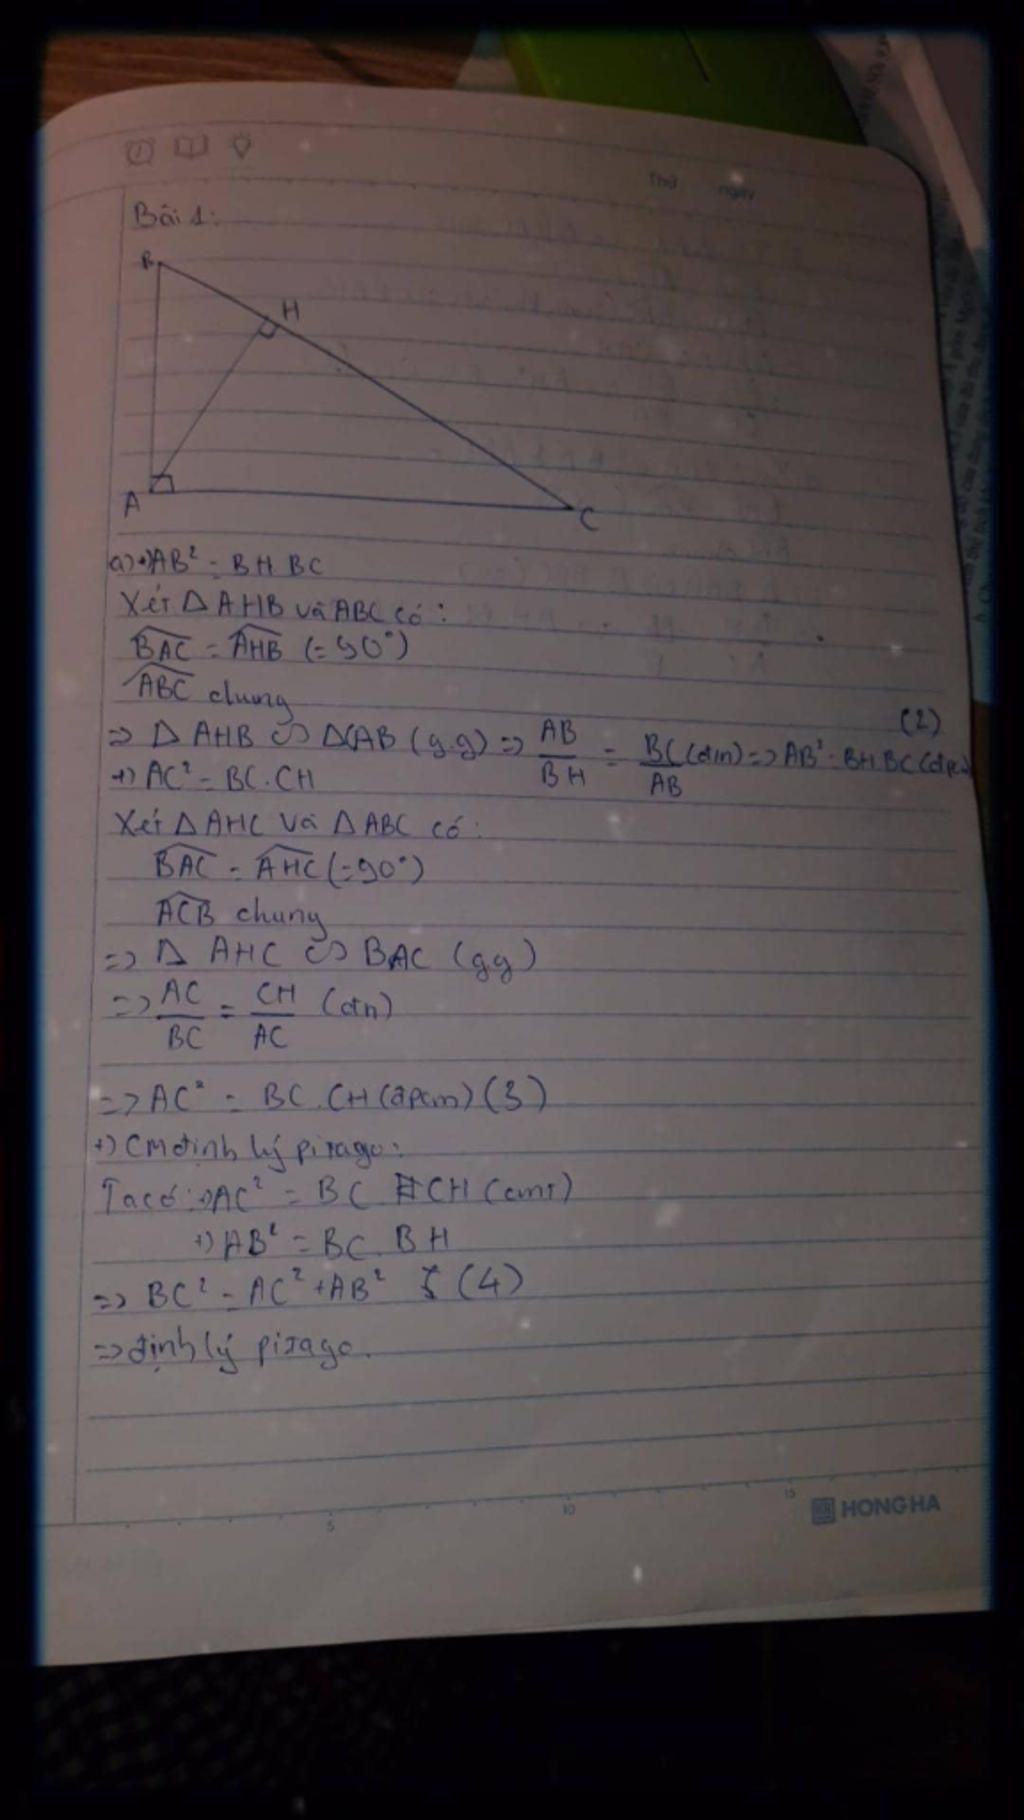 Thứ ngày
Bài 1:
B
H
A
C
a) +) AB² = BH.BC
Xét △ AHB và ABC có:
BAC = AHB (=90°)
ABC chung
(2)
=> △ AHB ∽ △CAB (g.g) => AB/BH = BC/AB (đtn) => AB² = BH.BC
+) AC² = BC.CH
Xét △AHC và △ABC có:
BAC = AHC (=90°)
ACB chung
=> △ AHC ∽ BAC (gg)
=> AC/BC = CH/AC (đtn)
=> AC² = BC.CH (đpcm) (3)
+) CM định lý pitago:
Ta có: +) AC² = BC CH (cmt)
+) AB² = BC.BH
=> BC² = AC² + AB² (4)
=> định lý pitago.
5 10 15
HONG HA